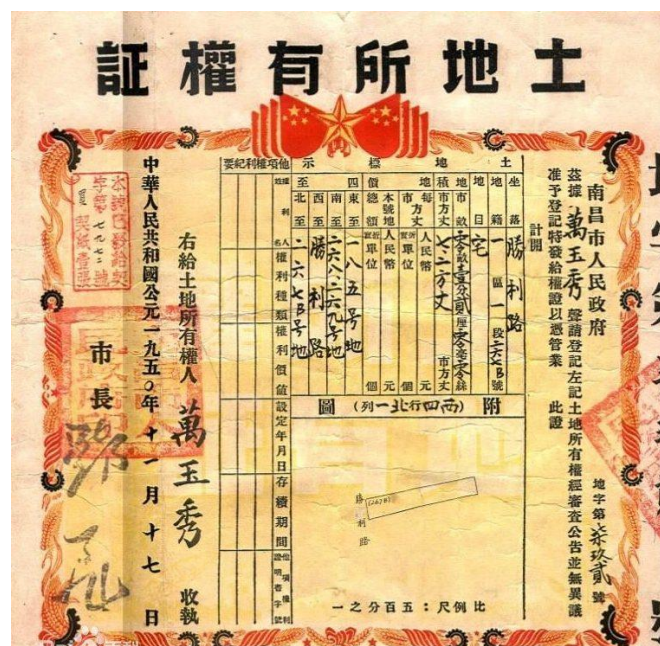 土地所有權証
南昌市人民政府
茲據萬玉秀聲請登記左記土地所有權經審查公告並無異議
准予登記特發給權證以憑管業 此證
計開
地字第 柒玖貳 號
土地標示
坐落 勝利路
地籍 一區一段二六七B號
地目 宅
地積 市畝 零畝壹分貳厘零毫零絲
市方丈 七二方丈 市方丈
地價 每市方丈 人民幣 元
折實單位 個
本號地總額 人民幣 元
折實單位 個
四至
東至 一八五号地
南至 二六八.二六九号地
西至 勝利路
北至 二六七B号地
他項權利紀要
權利人姓名
權利種類
權利價值
設定年月日
存續期間
他項權利證明書字號
附圖 (西四行北一列)
勝利路
(267B)
比例尺：五百分之一
右給土地所有權人 萬玉秀 收執
中華人民共和國公元一九五〇年十一月十七日
市長
本證已發給契
字第 七九二 號
契紙壹張